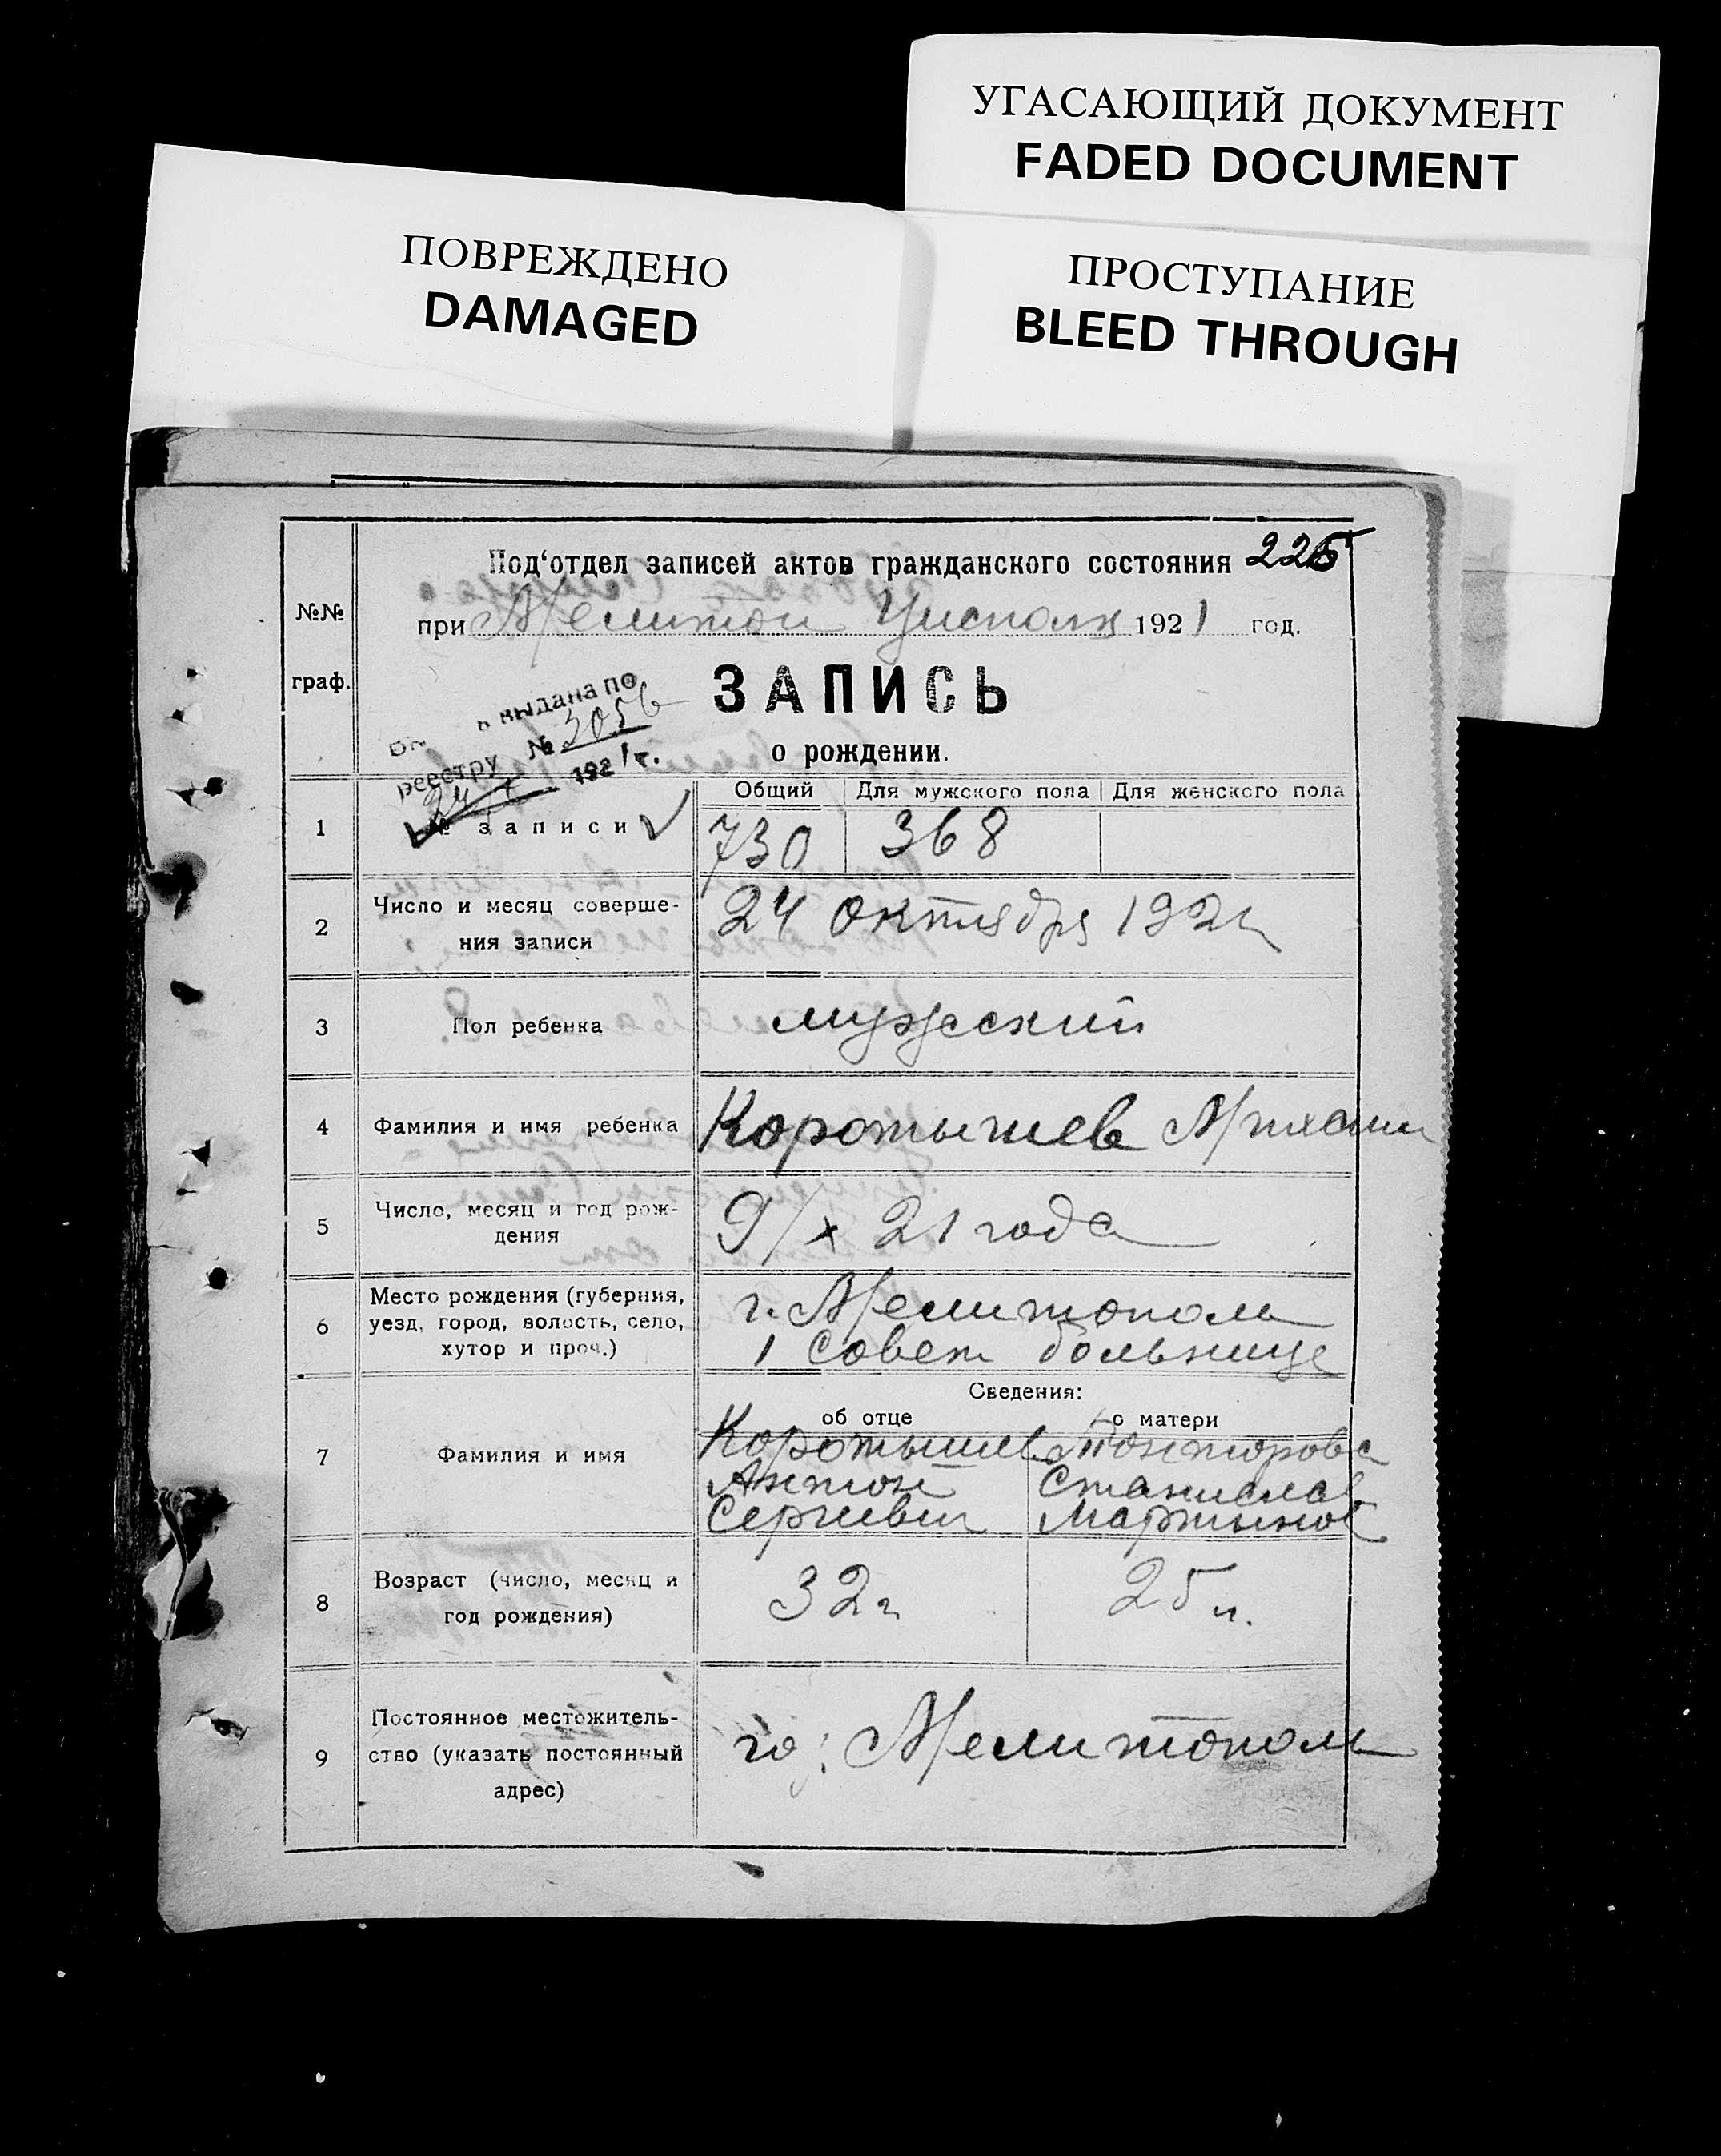 УГАСАЮЩИЙ ДОКУМЕНТ
FADED DOCUMENT
ПОВРЕЖДЕНО
DAMAGED
ПРОСТУПАНИЕ
BLEED THROUGH
Под‘отдел записей актов гражданского состояния 225
при Мелитоп Уисполк 1921 год.
№№
граф.
ЗАПИСЬ
о рождении.
выдана по
реестру № 3056
24 1921 г.
Общий Для мужского пола Для женского пола
1 № записи 730 368
2 Число и месяц соверше-
ния записи 24 октября 1921
3 Пол ребенка мужеский
4 Фамилия и имя ребенка Коротышев Михаил
5 Число, месяц и год рож-
дения 9/х 21 года
6 Место рождения (губерния,
уезд, город, волость, село,
хутор и проч.)
г. Мелитополь
1 Совет больнице
Сведения:
об отце о матери
7 Фамилия и имя
Коротышев
Антон
Сергиевич
Станислав
Мартынов
8 Возраст (число, месяц и
год рождения) 32 г 25 л.
9 Постоянное местожитель-
ство (указать постоянный
адрес)
го; Мелитополь